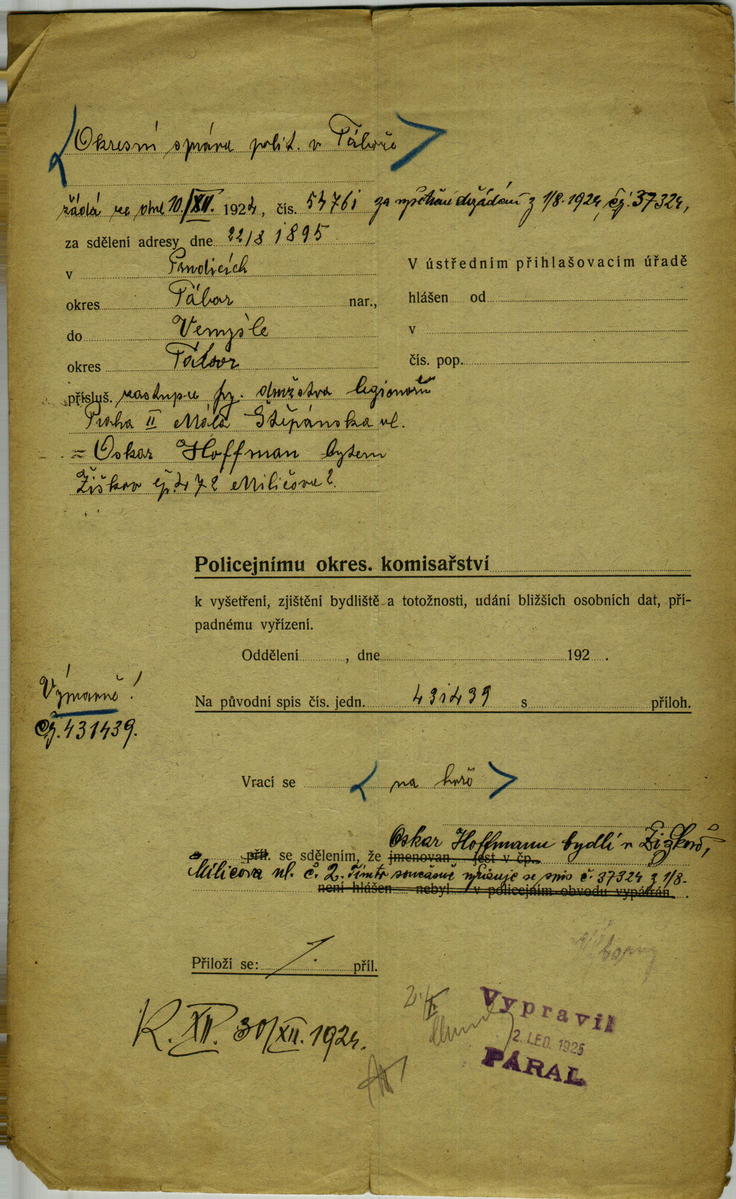 Okresní správa polit. v Táboře
žádá ze dne 10./XII. 1924, čís. 54761 za dožádání z 1/8.1924, čj. 37324,
za sdělení adresy dne 22/8 1895
v
okres Tábor nar.,
do Vemyšle
okres Tábor
přísluš. zástupce fy. družstva legionářů
Praha II Malá Štěpánska ul.
Oskar Hoffman bytem
Žižkov čp. 472 Miličova 2.
V ústředním přihlašovacím úřadě
hlášen od
v
čís. pop.
Policejnímu okres. komisařství
k vyšetření, zjištění bydliště a totožnosti, udání bližších osobních dat, pří-
padnému vyřízení.
Oddělení , dne 192 .
Na původní spis čís. jedn. 431439 s příloh.
čj. 431439.
Vrací se na hoře
Oskar Hoffmann bydlí v Žižkově,
příl. se sdělením, že jmenovan jest v čp.
Milíčova ul. č. 2. Tímto současně vyřizuje se spis č. 37324 z 1/8.
není hlášen nebyl v policejním obvodu vypátrán
Přiloží se: 1. příl.
K. XII. 30/XII. 1924.
Vypravil
2. LED. 1925
PÁRAL